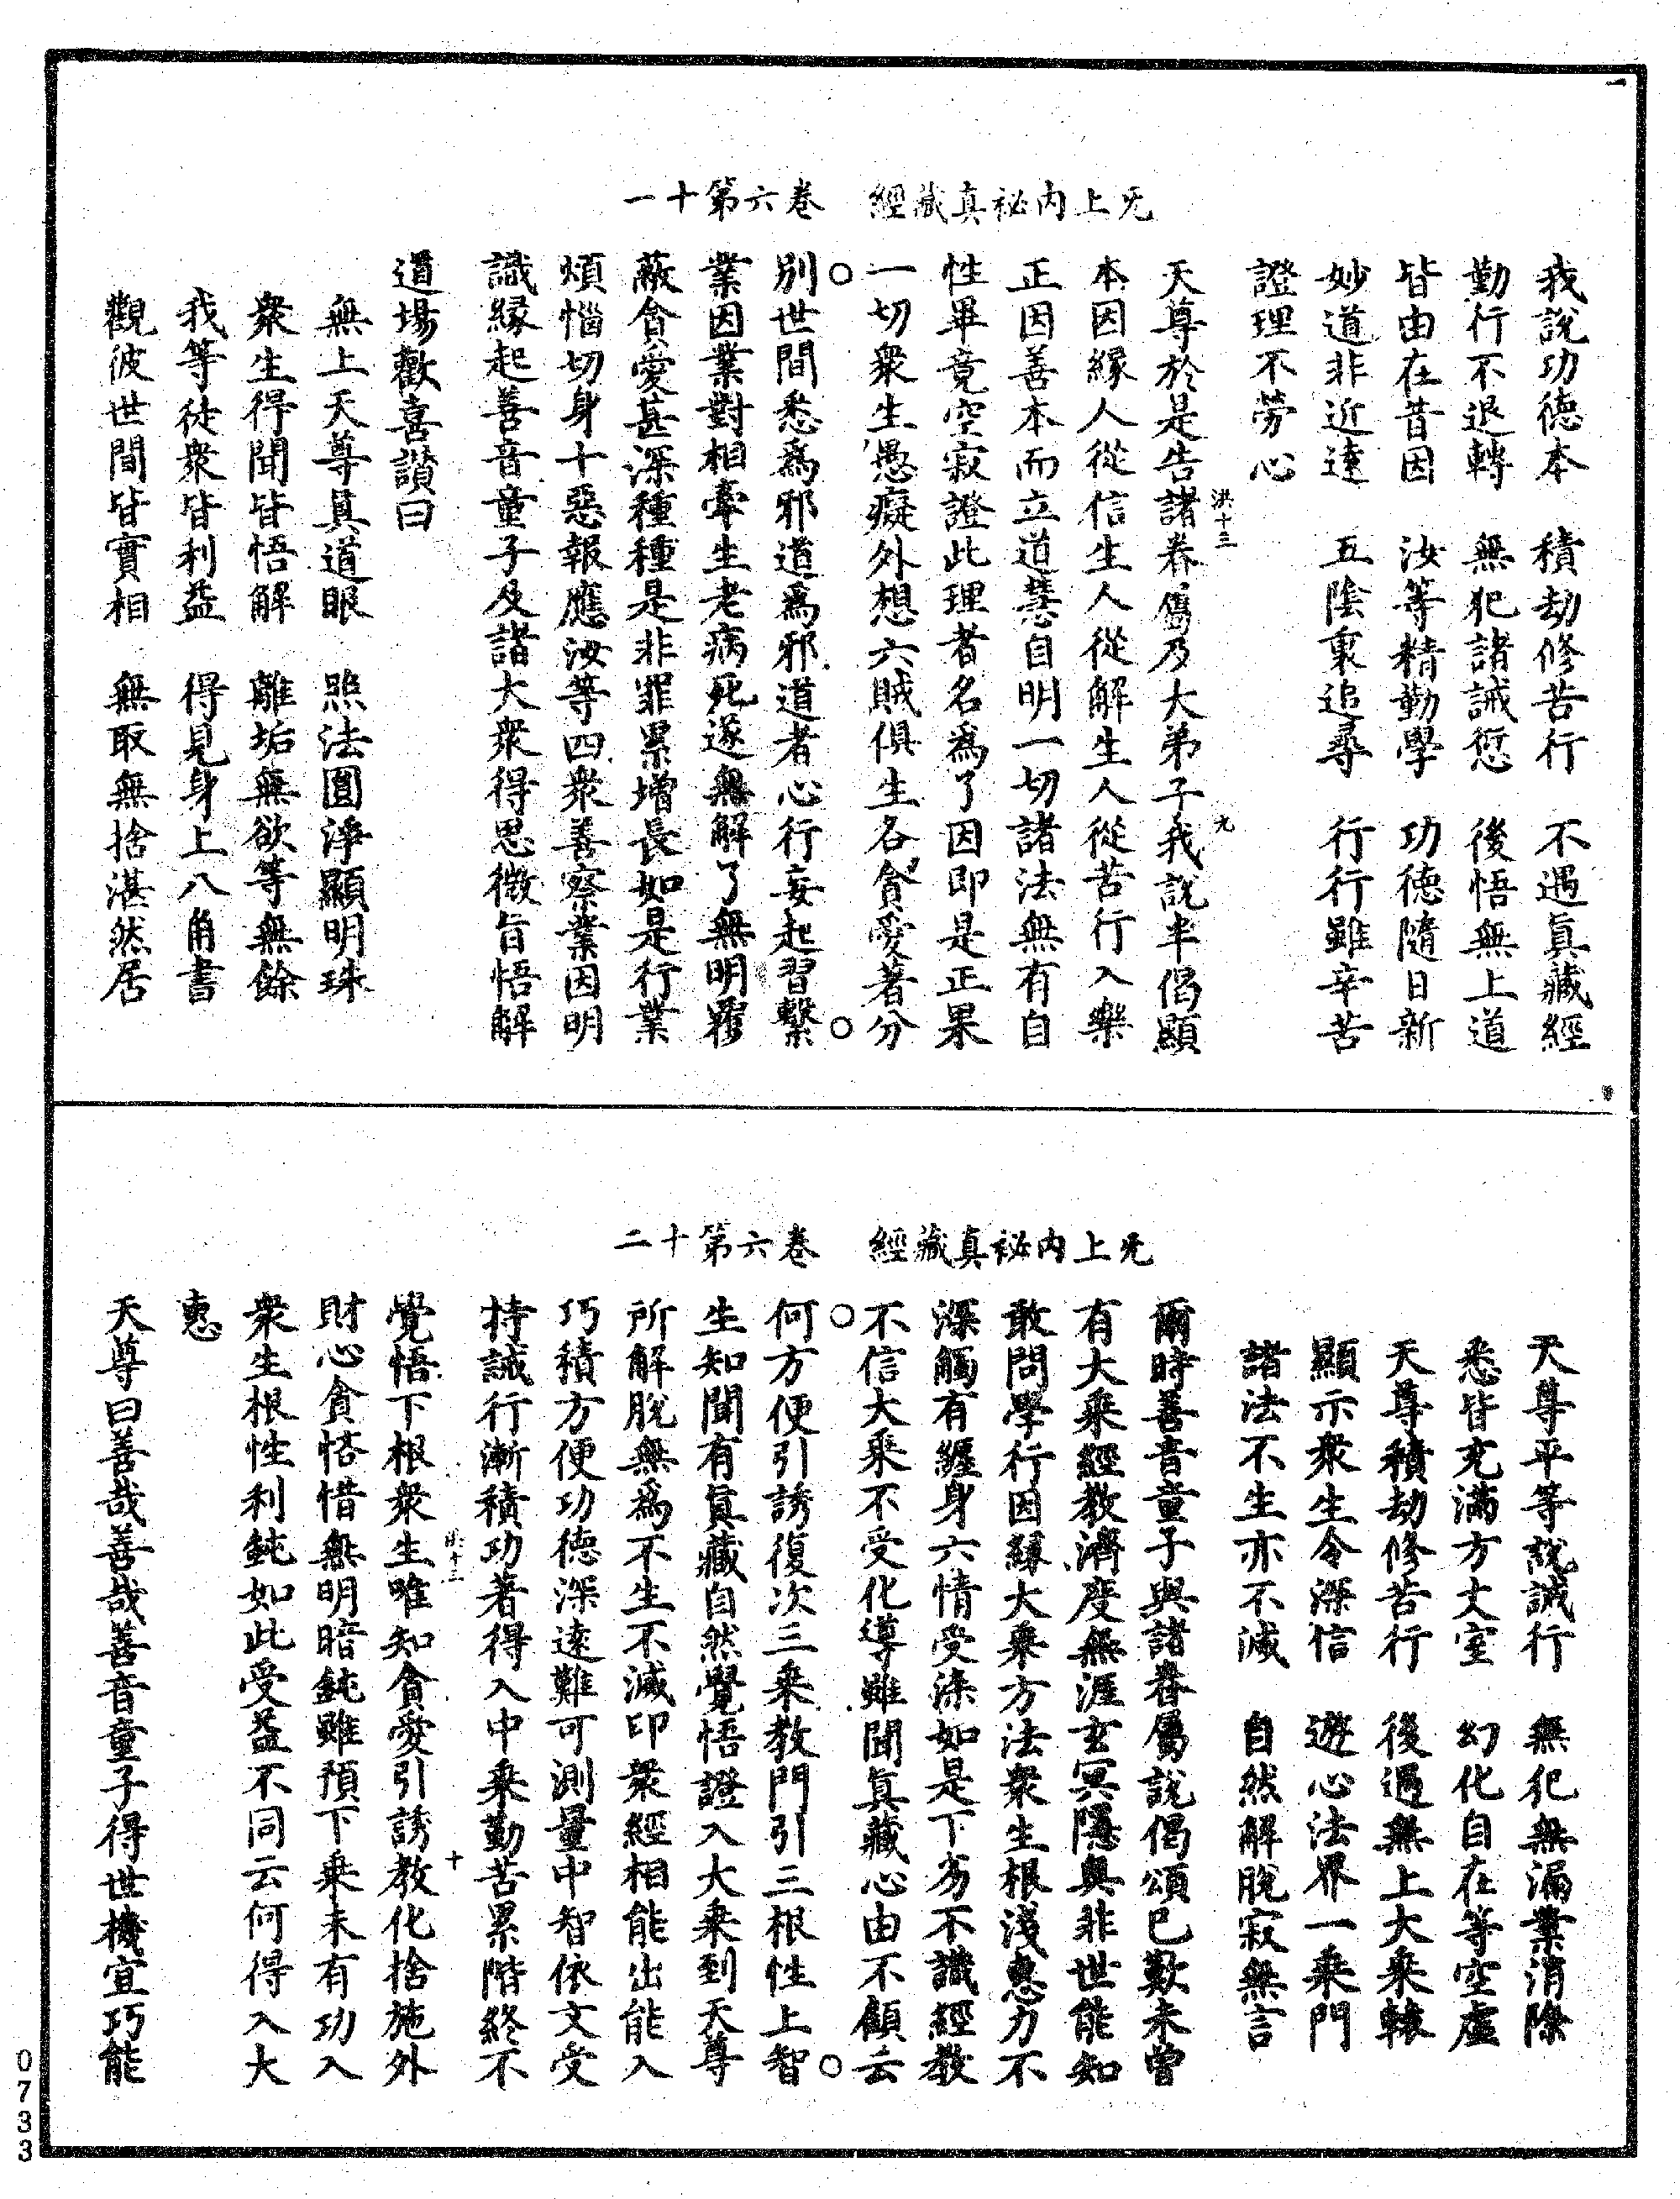 一十第六卷　經藏真祕内上无
我說功德本　積劫修苦行　不遇眞藏經
勤行不退轉　無犯諸誡愆　後悟無上道
皆由在昔因　汝等精勤學　功德隨日新
妙道非近遠　五陰東追尋　行行雖辛苦
證理不勞心
洪十三
九
天尊於是告諸眷屬乃大弟子我說半偈顯
本因緣人從信生人從解生人從苦行入樂
正因善本而立道慧自明一切諸法無有自
性畢竟空寂證此理者名爲了因即是正果
一切衆生愚癡外想六賊俱生各貪愛著分
別世間悉爲邪道爲邪道者心行妄起習繫
業因業對相牽生老病死遂無解了無明羅
蔽貪愛甚深種種是非罪累增長如是行業
煩惱切身十惡報應汝等四衆善察業因明
識緣起善音童子及諸大衆得思微旨悟解
道場歡喜讃曰
無上天尊真道眼　照法圓淨顯明珠
衆生得聞皆悟解　離垢無欲等無餘
我等徒衆皆利益　得見身上八角書
觀彼世間皆實相　無取無捨湛然居
二十第六卷　經藏真祕内上无
天尊平等說誡行　無犯無漏業消除
悉皆充滿方丈室　幻化自在等空虛
天尊積劫修苦行　後遇無上大乘轅
顯示衆生令深信　遊心法界一乘門
諸法不生亦不滅　自然解脫寂無言
爾時善音童子與諸眷屬說偈頌已歎未曾
有大乘經教濟度無涯玄冥隱奧非世能知
敢問學行因緣大乘方法衆生根淺惠力不
深觸有纏身六情受染如是下劣不識經教
不信大乘不受化導雖聞眞藏心由不顧云
何方便引誘復次三乘教門引三根性上智
生知聞有眞藏自然覺悟證入大乘到天尊
所解脫無爲不生不滅印衆經相能出能入
巧積方便功德深遠難可測量中智依文受
持誡行漸積功著得入中乘勤苦累階終不
洪十三
十
覺悟下根衆生唯知貪愛引誘教化捨施外
財心貪悋惜無明暗鈍雖預下乘未有功入
衆生根性利鈍如此受益不同云何得入大
惠
天尊曰善哉善哉善音童子得世機宜巧能
0733